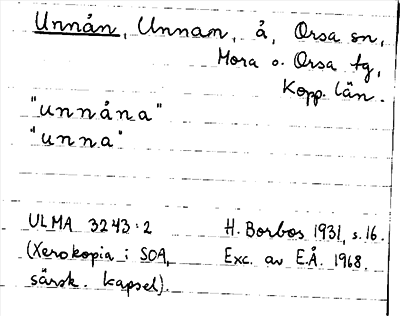 Unnån, Unnam, å, Orsa sn,
Mora o. Orsa tg,
Kopp. län.
"unnåna"
"unna"
ULMA 3243:2 H. Borbos 1931, s. 16.
(Xerokopia i SOA, Exc. av E.Å. 1968.
särsk. kapsel).